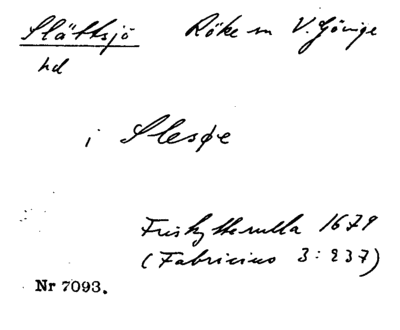 Slättsjö Röke sn V. Göinge
hd
i Slesøe
Friskytterulla 1679
(Fabricius 3:237)
Nr 7093.